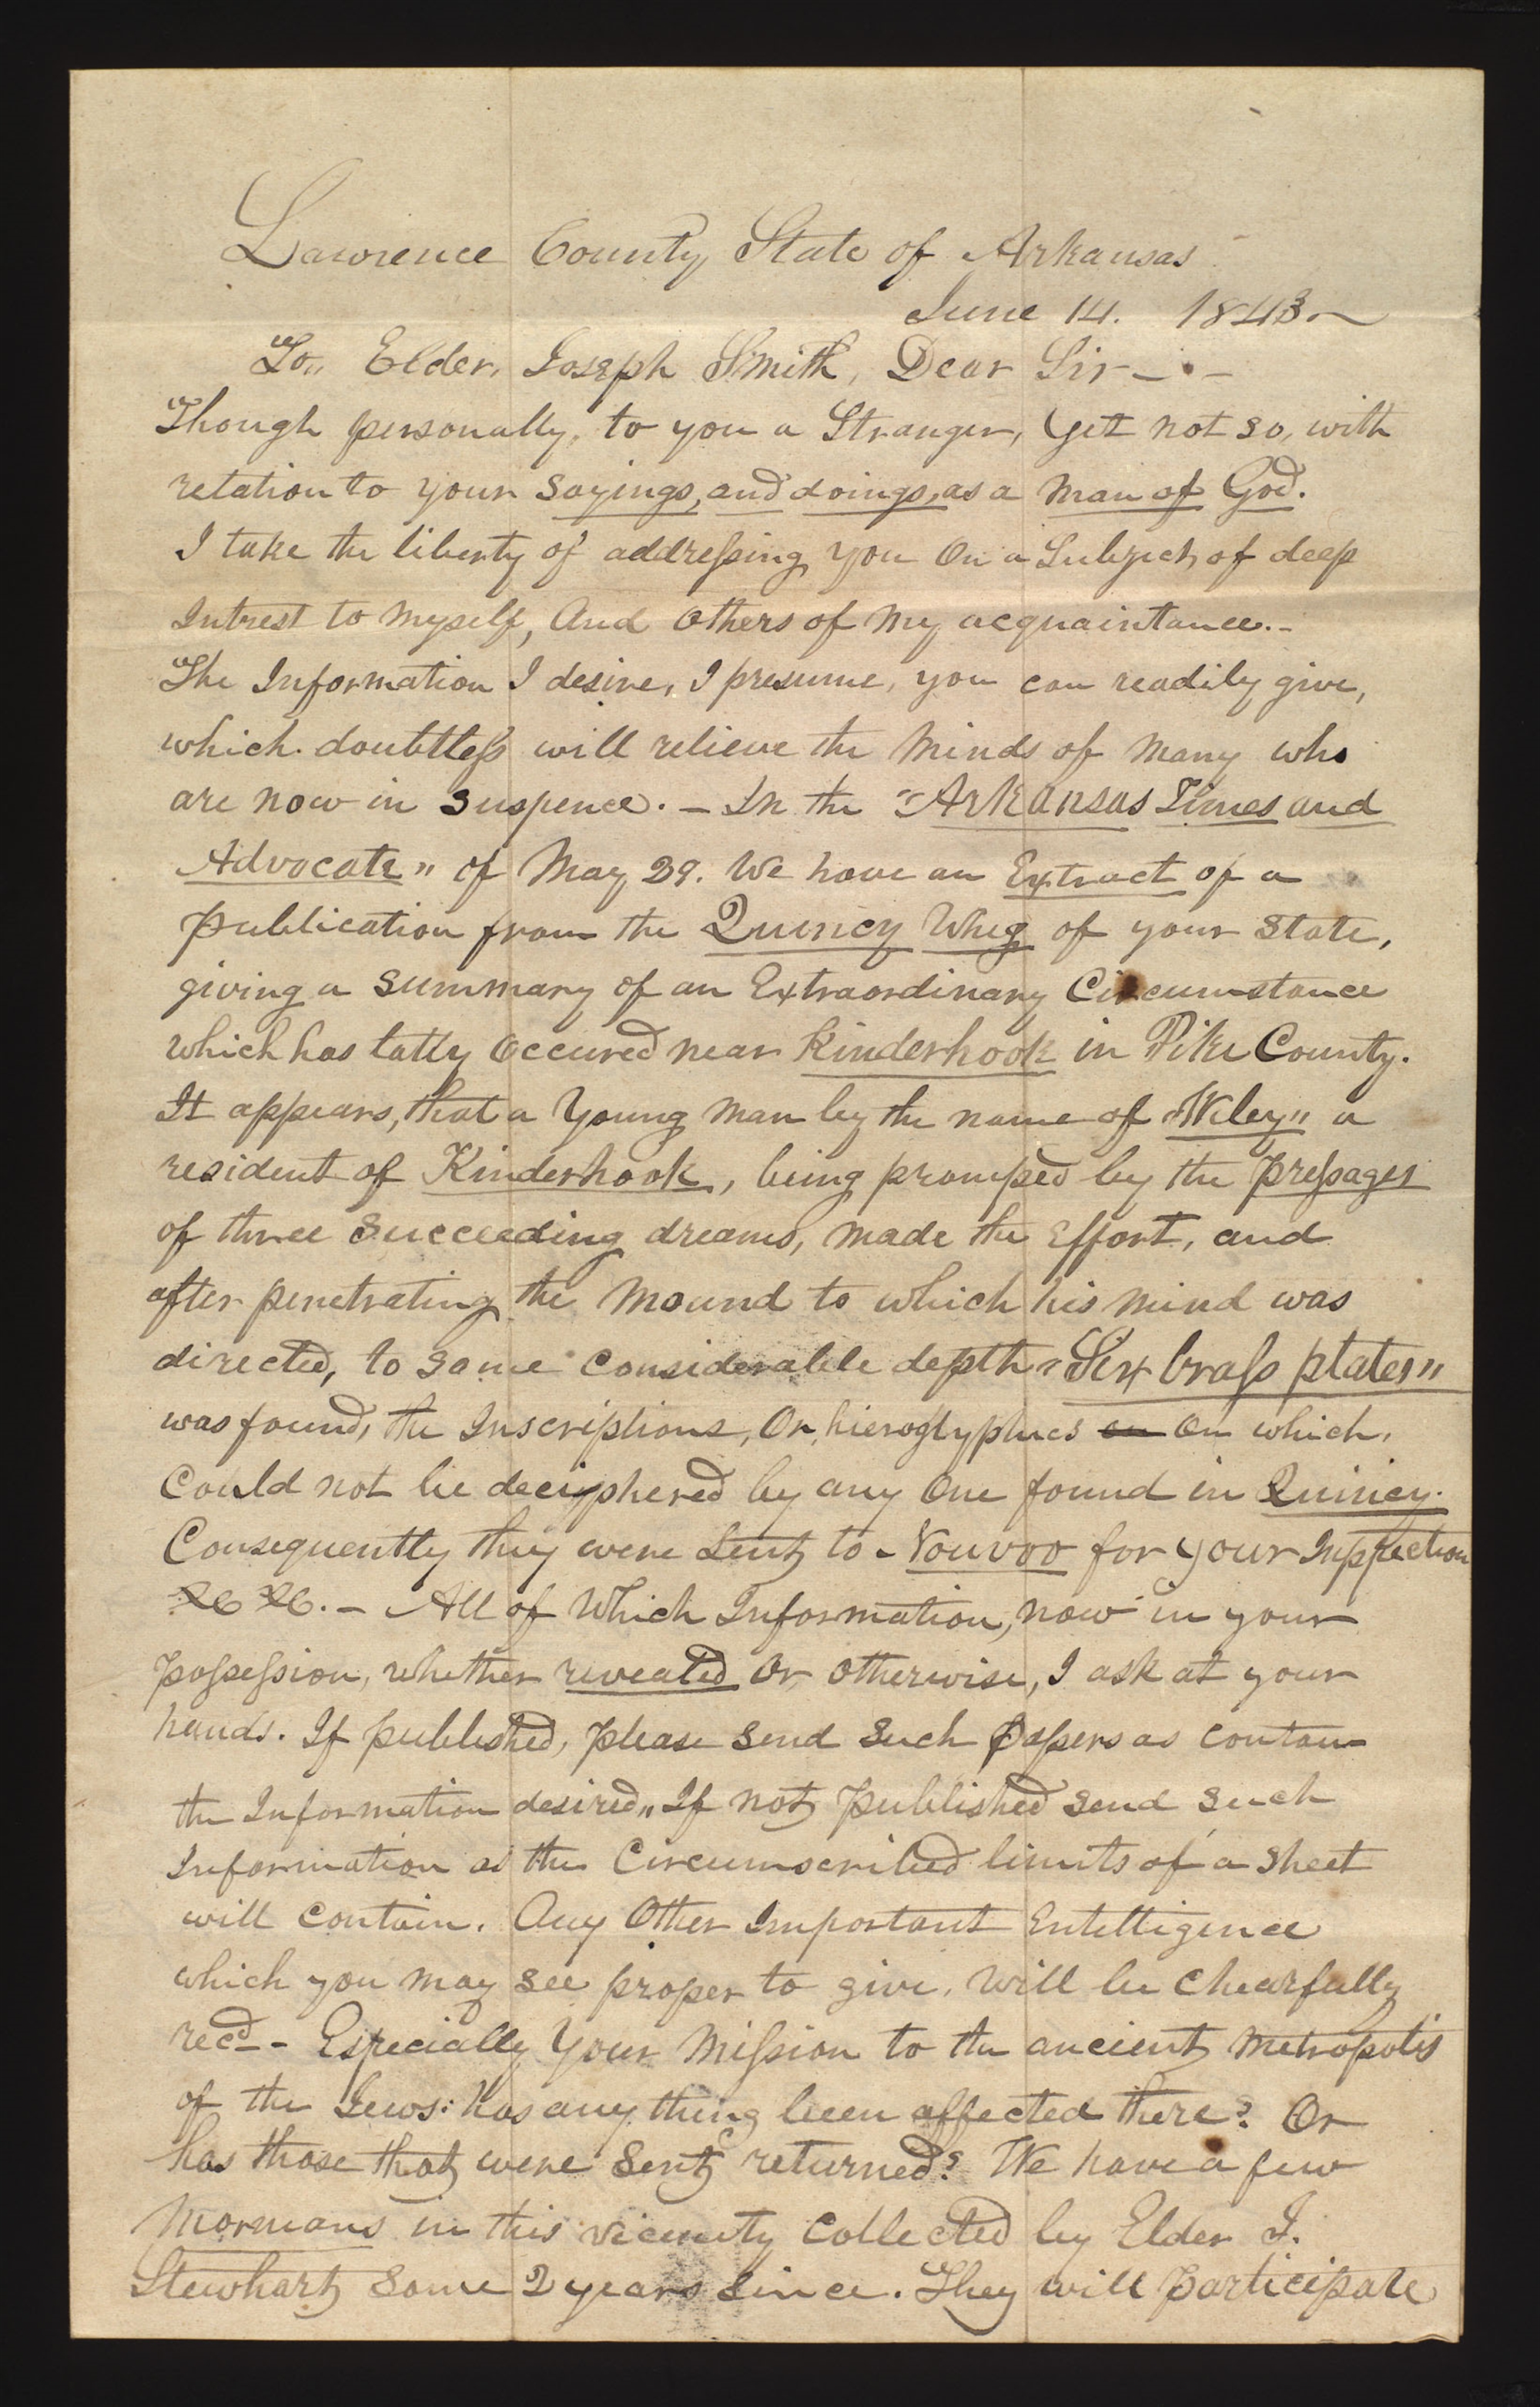 Lawrence County State of Arkansas
June 14. 1843.
To,, Elder, Joseph Smith, Dear Sir—.—
Though personally, to you a Stranger, yet not so, with
relation to your sayings, and doings, as a man of God.
I take the liberty of addressing you On a Subject of deep
Intrest to myself, And Others of my acquaintance.—
The Information I desire, I presume, you can readily give,
which doubttless will relieve the minds of many who
are now in suspence. — In the "Arkansas Times and
Advocate" of May 29. We have an Extract of a
publication from the Quincy Whig of your State,
giving a summary of an Extraordinary Circumstance
which has latly Occured near Kinderhook in Pike County.
It appears, that a Young man by the name of "Wiley" a
resident of Kinderhook, being promped by the pressages
of three succeeding dreams, made the Effort, and
after penetrating the mound to which his mind was
directed, to some considerable depth "Six brass plates"
was found, the Inscriptions, Or, hieroglyphics on On which,
Could not be deciyphered by any One found in Quincy.
Consequently they were Sent to Nouvoo for your Inspection
&c &c. — All of Which Information, now in your
possession, whether revealed Or otherwise, I ask at your
hands. If published, please send such papers as contain
the Information desired,, If not published send such
Information as the Circumscribed limits of a sheet
will contain. Any Other Important Entelligence
which you may see proper to give, will be chearfully
recd— Especially Your Mission to the ancient metropolis
of the Jews: has any thing been affected there? Or
has those that were Sent returned? We have a few
Mormans in this vicinity Collected by Elder J.
Stewhart some 2 years since. They will participate